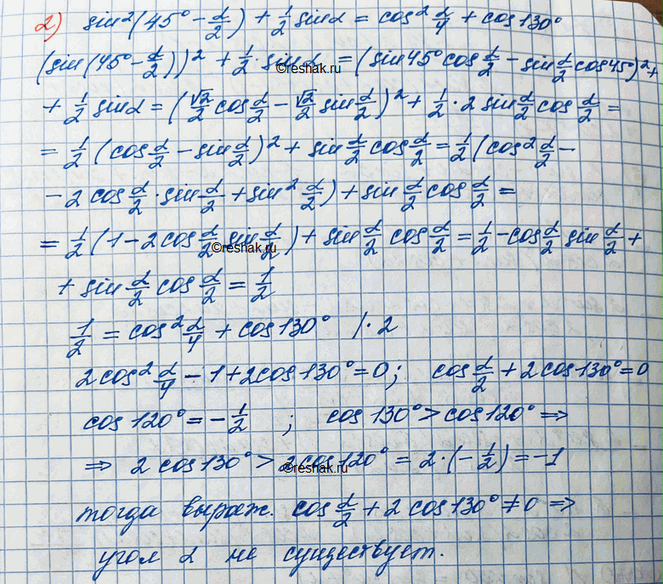 2) sin²(45° - α/2) + 1/2 sinα = cos² α/4 + cos130°
(sin(45° - α/2))² + 1/2 · sinα = (sin45° cos α/2 - sin α/2 cos45°)² +
©reshak.ru
+ 1/2 sinα = (√2/2 cos α/2 - √2/2 sin α/2)² + 1/2 · 2 sin α/2 cos α/2 =
= 1/2 (cos α/2 - sin α/2)² + sin α/2 cos α/2 = 1/2 (cos² α/2 -
- 2 cos α/2 · sin α/2 + sin² α/2) + sin α/2 cos α/2 =
= 1/2 (1 - 2 cos α/2 sin α/2) + sin α/2 cos α/2 = 1/2 - cos α/2 sin α/2 +
©reshak.ru
+ sin α/2 cos α/2 = 1/2
1/2 = cos² α/4 + cos130° | · 2
2 cos² α/4 - 1 + 2cos130° = 0; cos α/2 + 2 cos130° = 0
cos 120° = - 1/2 ; cos 130° > cos120° ⇒
⇒ 2 cos130° > 2cos120° = 2 · (- 1/2) = -1
©reshak.ru
тогда выраж. cos α/2 + 2 cos130° ≠ 0 ⇒
угол α не существует.